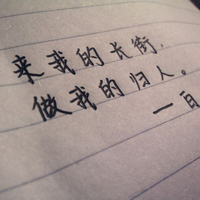 来我的长街,
做我的归人。
一白